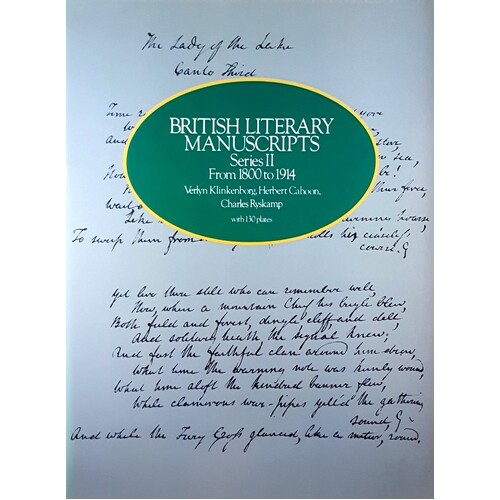 The Lady of the Lake
Canto Third
Time yore
And sea,
be!
their force,
BRITISH LITERARY
MANUSCRIPTS
Series II
From 1800 to 1914
Verlyn Klinkenborg, Herbert Cahoon,
Charles Ryskamp
with 130 plates
Like hoarse,
To sweep them from his ceaseless
course!
Yet live there still who can remember well,
How, when a mountain Chief his bugle blew,
Both field and forest, dingle, cliff, and dell,
And solitary heath the signal knew;
And fast the faithful clan around him drew,
What time the warning note was keenly wound,
What time aloft the kindred banner flew,
While clamorous war-pipes yell'd the gathering
sound,
And while the Fiery Cross glanced, like a meteor, round.